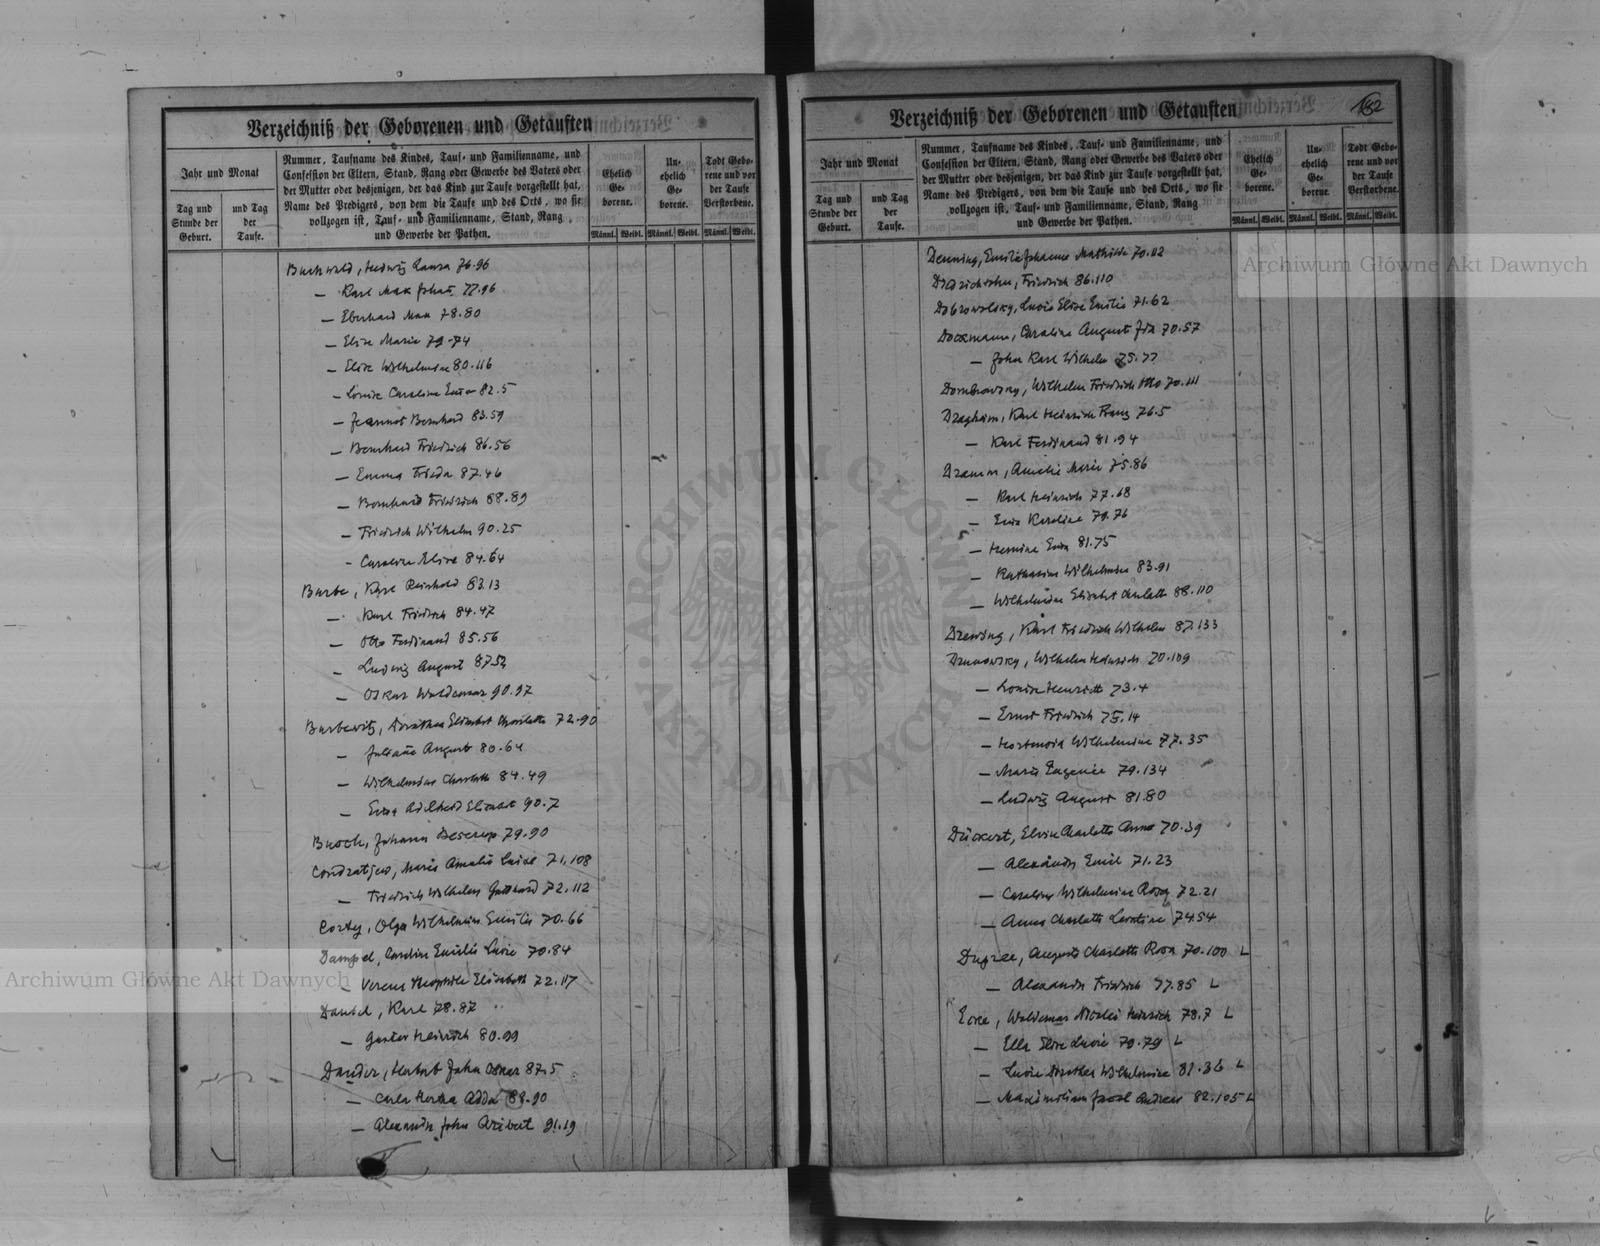 Verzeichniß der Geborenen und Getauften
Jahr und Monat
Tag und Stunde der Geburt.
und Tag der Taufe.
Nummer, Taufname des Kindes, Tauf- und Familienname, und
Confession der Eltern, Stand, Rang oder Gewerbe des Vaters oder
der Mutter oder desjenigen, der das Kind zur Taufe vorgestellt hat,
Name des Predigers, von dem die Taufe und des Orts, wo sie
vollzogen ist, Tauf- und Familienname, Stand, Rang
und Gewerbe der Pathen.
Ehelich Geborene.
Unehelich Geborene.
Todt Geborene und vor der Taufe Verstorbene.
Männl. Weibl. Männl. Weibl. Männl. Weibl.
Buchwald, Hedwig Laura 76.96
— Karl Max Johan 77.96
— Eberhard Max 78.80
— Elise Marie 79-74
— Elise Wilhelmine 80.116
— Louise Caroline Emma 82.5
— Jeannot Bernhard 83.59
— Bernhard Friedrich 86.56
— Emma Frieda 87.46
— Bernhard Friedrich 88.89
— Friedrich Wilhelm 90.25
- Caroline Elise 84.64
Burbe, Karl Reinhold 83.13
— Karl Friedrich 84.47
— Otto Ferdinand 85.56
— Ludwig August 87.52
— Oskar Waldemar 90.97
Burbewitz, Dorothea Elisabet Charlotte 72-90
— Juliane August 80.64
— Wilhelmine Charlotte 84.49
— Adelheid Elisabet 90.7
Busch, Johann 79.90
Condratjew, Marie Amalie Luise 71.108
— Friedrich Wilhelm Gotthard 72.112
Corty, Olga Wilhelmine Emilie 70.66
Dampel, Caroline Emilie Lucie 70.84
— Verene Theophile Elisabeth 72.117
Dausel, Karl 78.87
— Gustav Heinrich 80.99
Dauder, Herbert John Oskar 87.5
— Carla Hertha Adda 89.90
— Alexander John Aribert 91.19
Verzeichniß der Geborenen und Getauften
182
Jahr und Monat
Tag und Stunde der Geburt.
und Tag der Taufe.
Nummer, Taufname des Kindes, Tauf- und Familienname, und
Confession der Eltern, Stand, Rang oder Gewerbe des Vaters oder
der Mutter oder desjenigen, der das Kind zur Taufe vorgestellt hat,
Name des Predigers, von dem die Taufe und des Orts, wo sie
vollzogen ist, Tauf- und Familienname, Stand, Rang
und Gewerbe der Pathen.
Ehelich Geborene.
Unehelich Geborene.
Todt Geborene und vor der Taufe Verstorbene.
Männl. Weibl. Männl. Weibl. Männl. Weibl.
Denning, Emilie Johanna Mathilde 70.112
Friedrich 86.110
Dobrowolsky, Lucie Elise Emilie 71.62
Dockmann, Caroline August Ida 70.57
— John Karl Wilhelm 75.77
Dombrowsky, Wilhelm Friedrich Otto 70.111
Dragheim, Karl Heinrich Franz 76.5
— Karl Ferdinand 81.94
Dramm, Amalie Marie 75.86
— Karl Heinrich 77.68
— Emma Karoline 79.76
— Hermine Emma 81.75
— Katharina Wilhelmine 83.91
— Wilhelmine Elisabet Charlotte 88.110
Drewing, Karl Friedrich Wilhelm 87.133
Drunowsky, Wilhelm Heinrich 70.109
— Louise Henriette 73.4
— Ernst Friedrich 75.14
— Hortensia Wilhelmine 77.35
— Marie Eugenie 79.134
— Ludwig August 81.80
Dückert, Elvire Charlotte Anna 70.39
— Alexander Emil 71.23
— Caroline Wilhelmine Rosa 72.21
— Anna Charlotte Leontine 74.54
Dupree, Auguste Charlotte Rosa 70.100 L
— Alexander Friedrich 77.85 L
Ecke, Waldemar Nicolai Heinrich 78.7 L
— Ella Elise Lucie 79.79 L
— Lucie Dorothea Wilhelmine 81.36 L
— Maximilian Jacob Andreas 82.105 L
Archiwum Główne Akt Dawnych
Archiwum Główne Akt Dawnych
ARCHIWUM GŁÓWNE AKT DAWNYCH